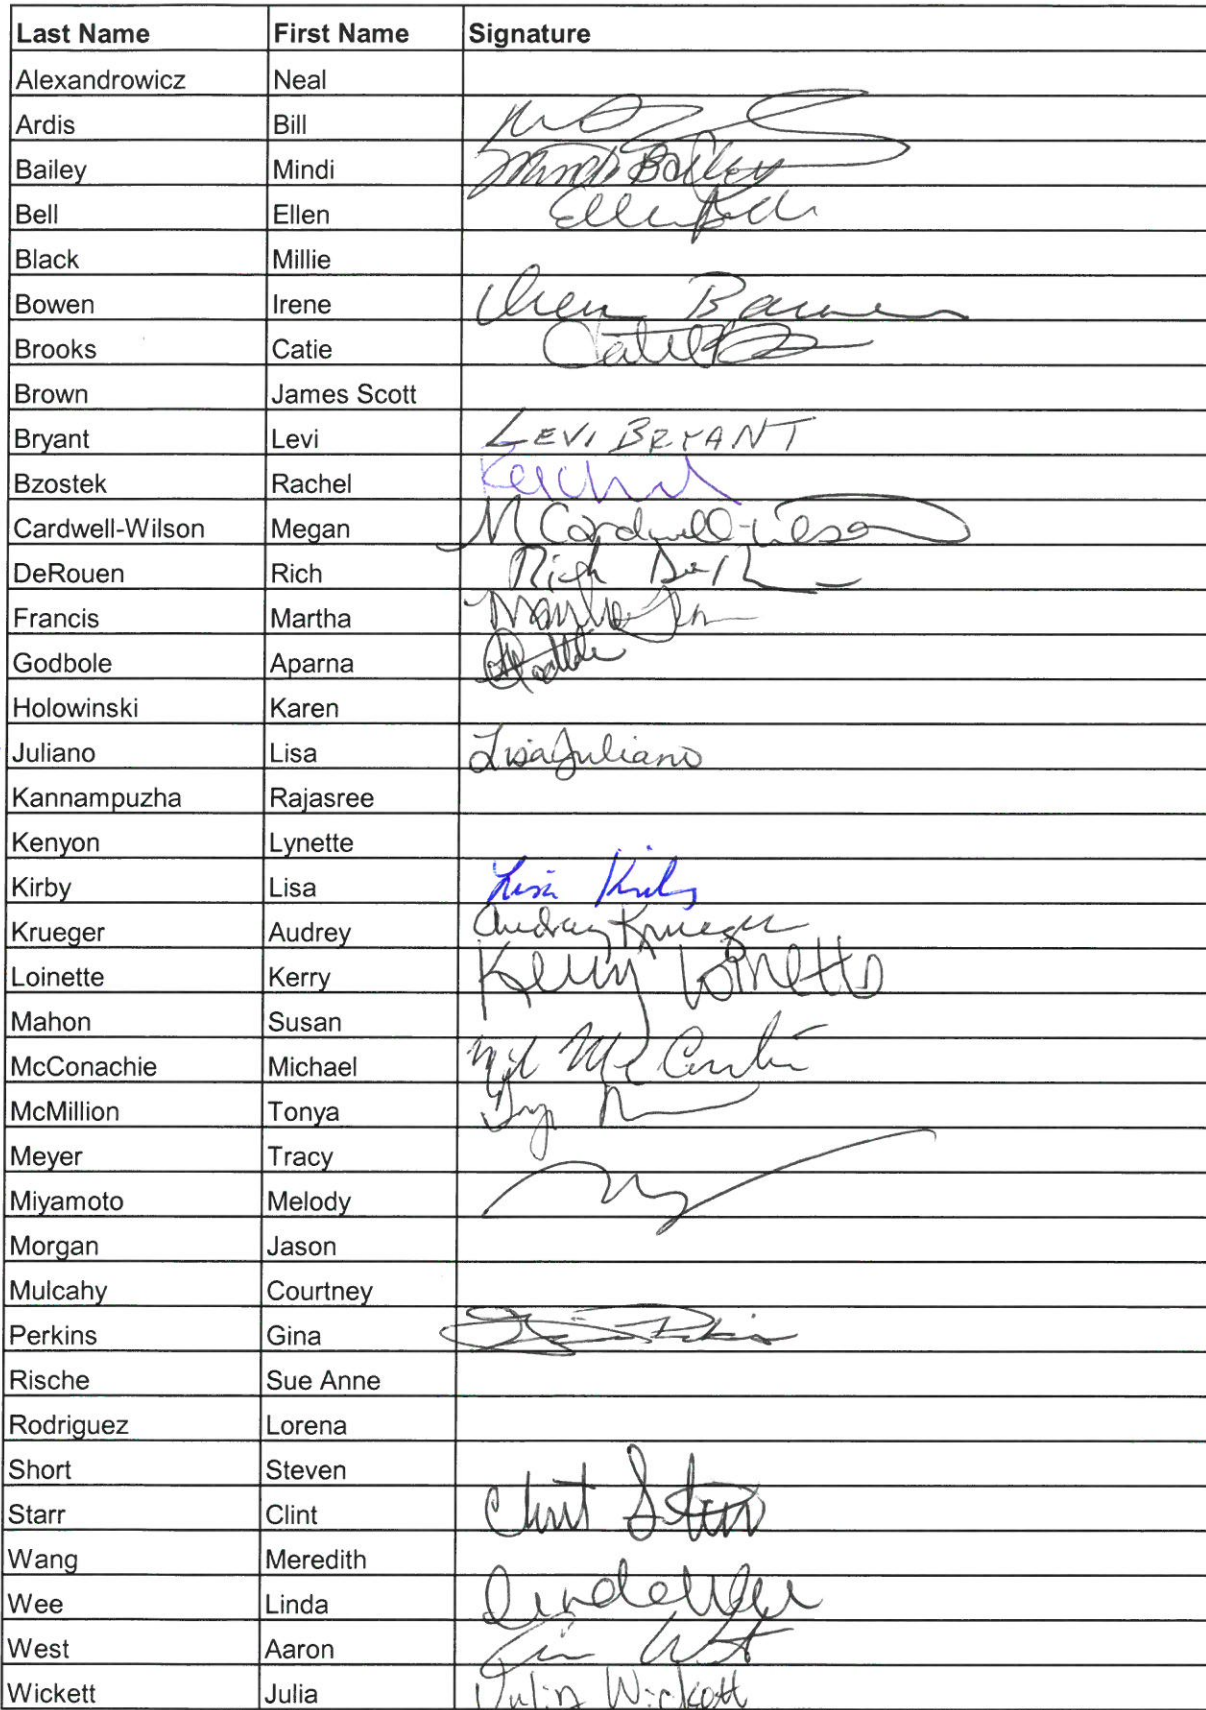 Last Name First Name Signature
Alexandrowicz Neal
Ardis Bill
Bailey Mindi Mindi Bailey
Bell Ellen Ellen Bell
Black Millie
Bowen Irene Irene Bowen
Brooks Catie Catie
Brown James Scott
Bryant Levi LEVI BRYANT
Bzostek Rachel Rachel
Cardwell-Wilson Megan M Cardwell-Wilson
DeRouen Rich Rich
Francis Martha Martha
Godbole Aparna
Holowinski Karen
Juliano Lisa Lisa Juliano
Kannampuzha Rajasree
Kenyon Lynette
Kirby Lisa Lisa Kirby
Krueger Audrey Audrey Krueger
Loinette Kerry Kerry Loinette
Mahon Susan
McConachie Michael
McMillion Tonya
Meyer Tracy
Miyamoto Melody
Morgan Jason
Mulcahy Courtney
Perkins Gina Gina Perkins
Rische Sue Anne
Rodriguez Lorena
Short Steven
Starr Clint Clint Starr
Wang Meredith
Wee Linda Linda Wee
West Aaron West
Wickett Julia Julia Wickett